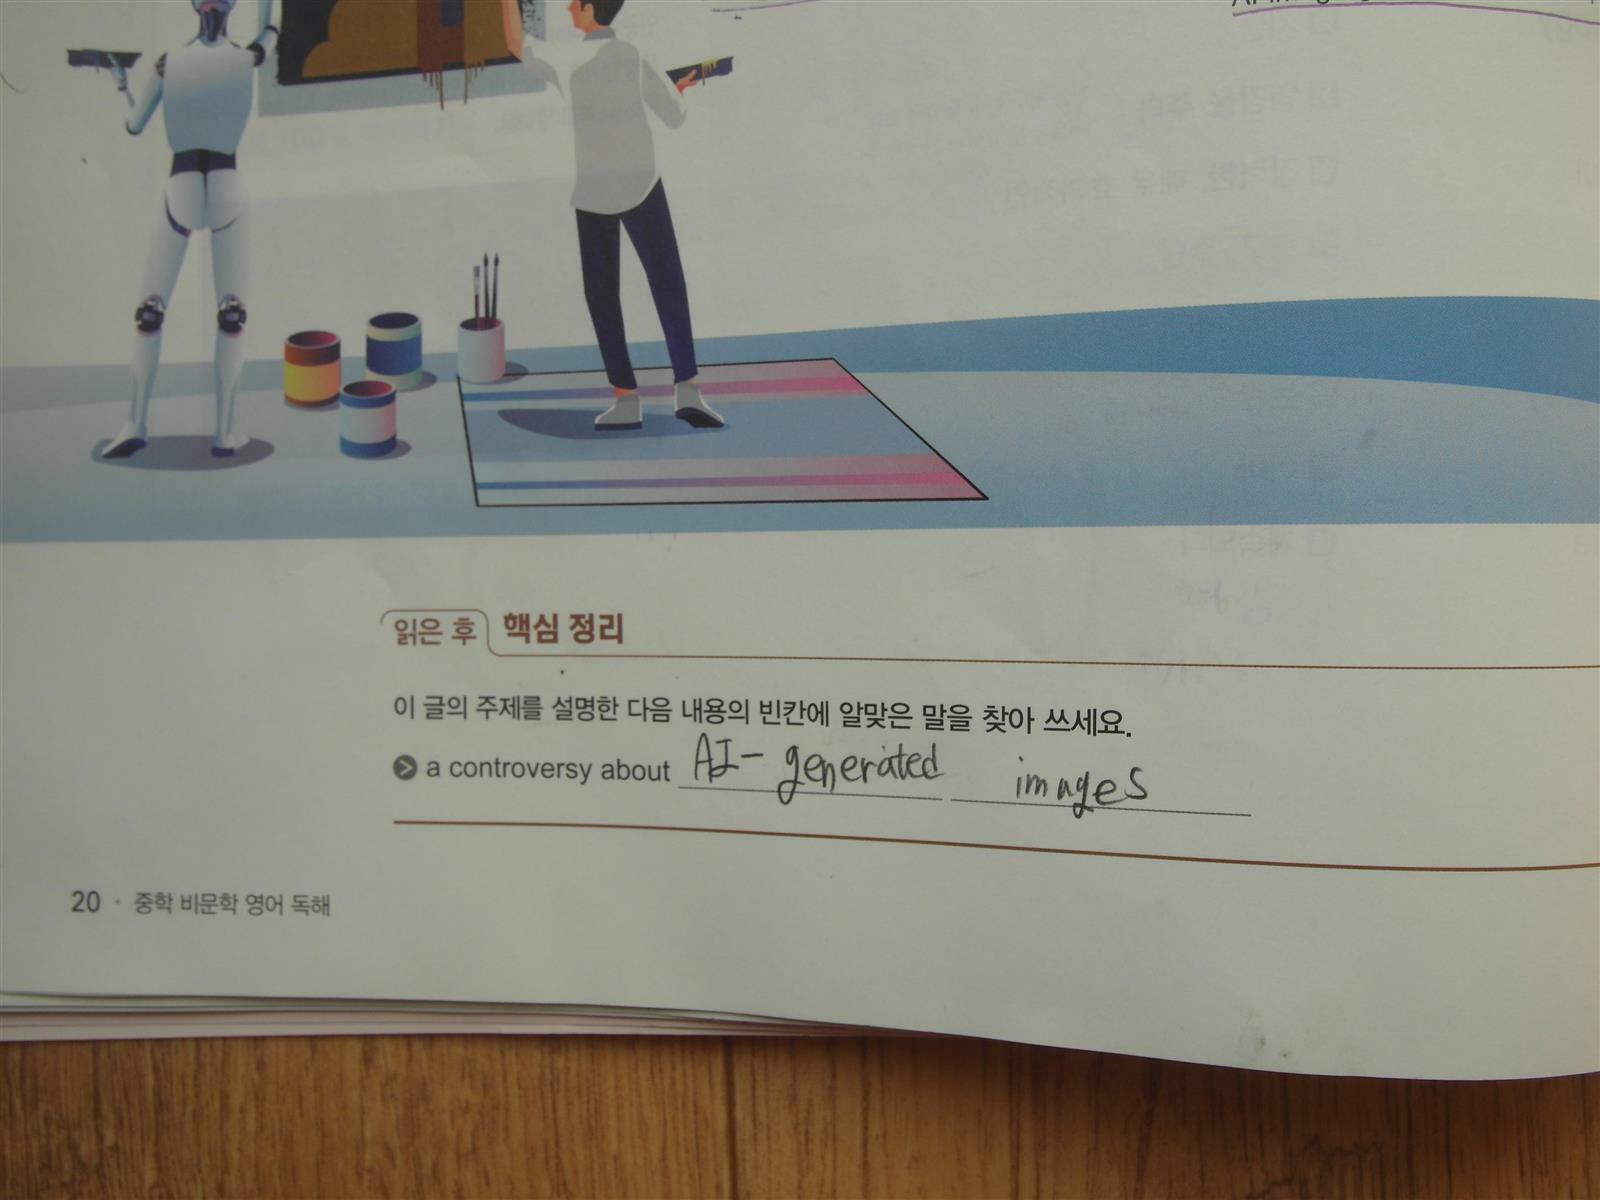 읽은 후 핵심 정리
이 글의 주제를 설명한 다음 내용의 빈칸에 알맞은 말을 찾아 쓰세요.
a controversy about AI- generated images
20 · 중학 비문학 영어 독해